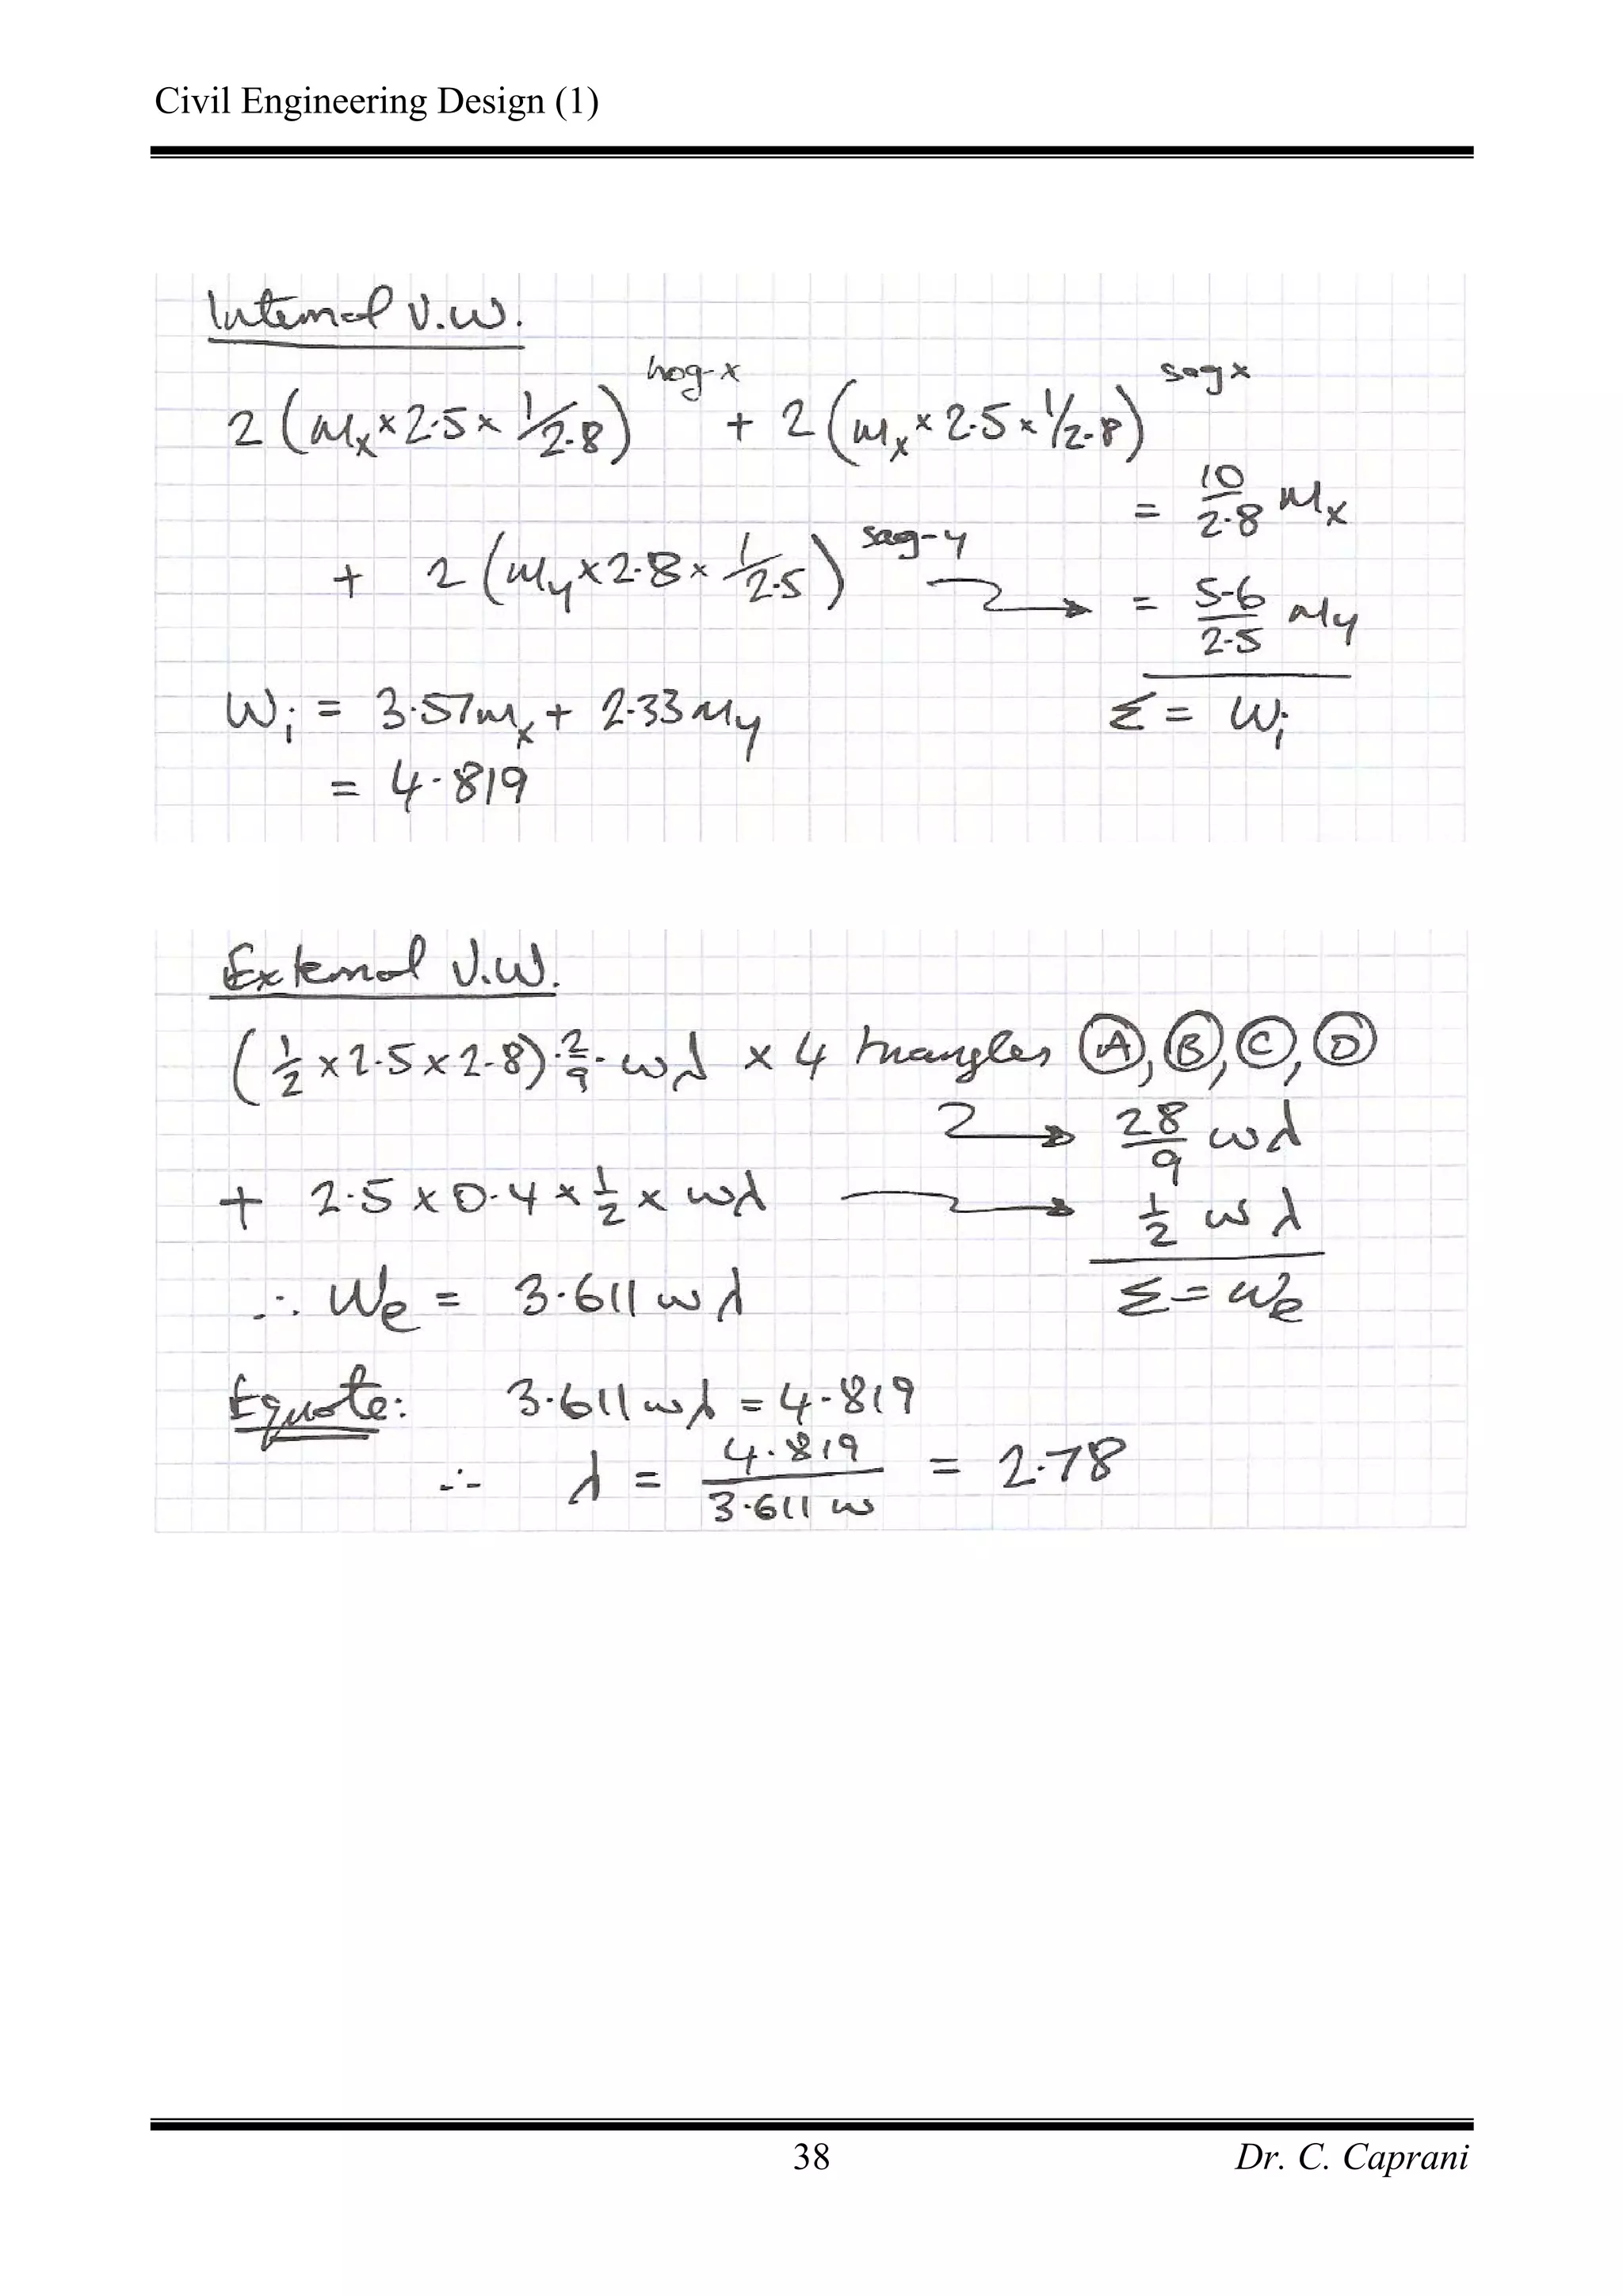 Civil Engineering Design (1)
Internal V.W.
2 (Mx × 2.5 × 1/2.8) hog-x + 2 (Mx × 2.5 × 1/2.8) sag x
= 10/2.8 Mx
+ 2 (My × 2.8 × 1/2.5) sag-y → = 5.6/2.5 My
Wi = 3.57Mx + 2.33My Σ = Wi
= 4.819
External V.W.
(1/2 × 2.5 × 2.8) · 2/9 · wλ × 4 triangles A, B, C, D
→ 28/9 wλ
+ 2.5 × 0.4 × 1/2 × wλ → 1/2 wλ
∴ We = 3.611 wλ Σ = We
Equate: 3.611 wλ = 4.819
∴ λ = 4.819/3.611 w = 2.78
38 Dr. C. Caprani